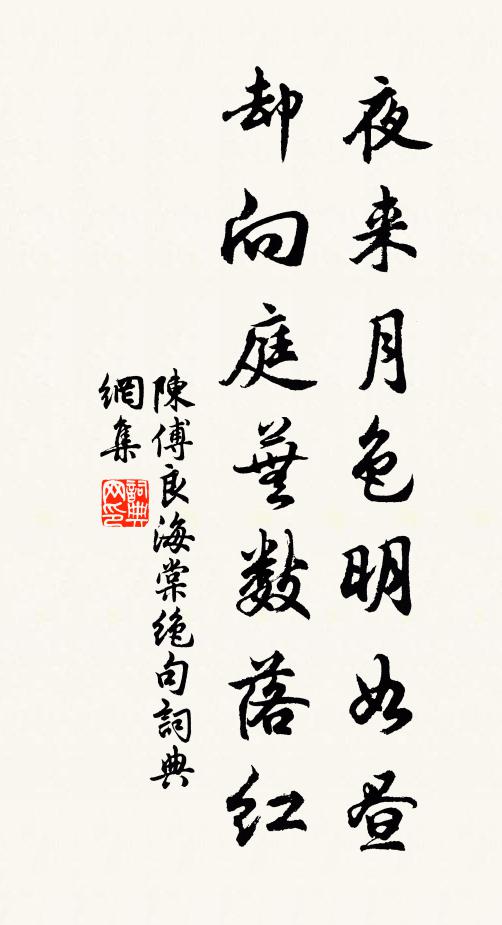 夜来月色明如昼
却向庭芜数落红
陳傅良海棠絶句詞典
網集
詞典
网印